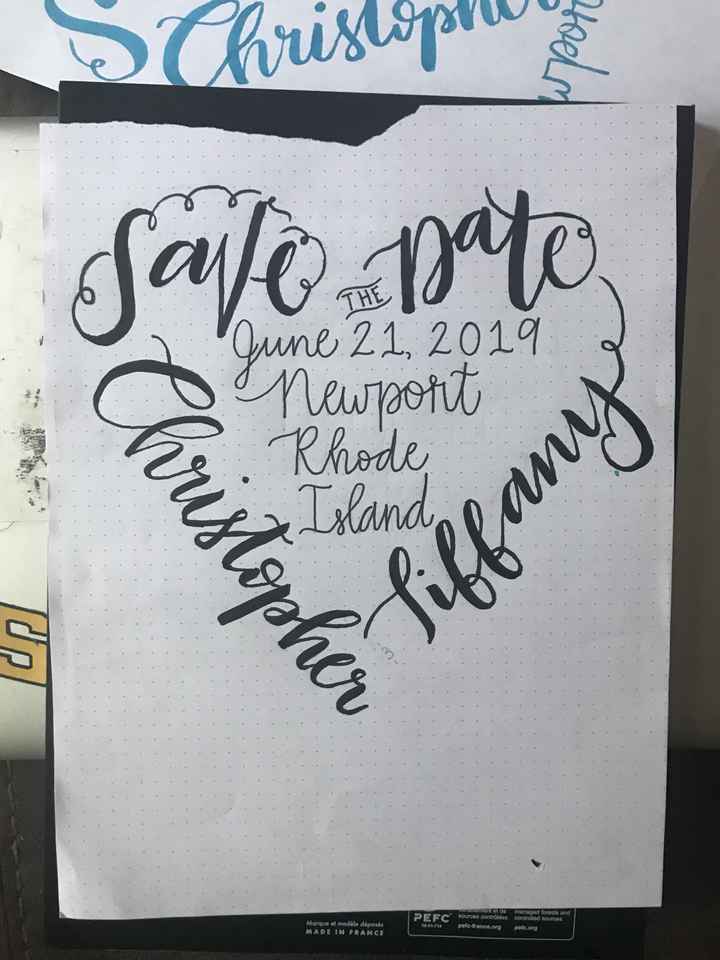 Christopher
Save the Date
June 21, 2019
Newport
Rhode
Island
Christopher
Tiffany
S
Marque et modèle déposés
MADE IN FRANCE
PEFC
pefc-france.org
managed forests and
controlled sources
pefc.org